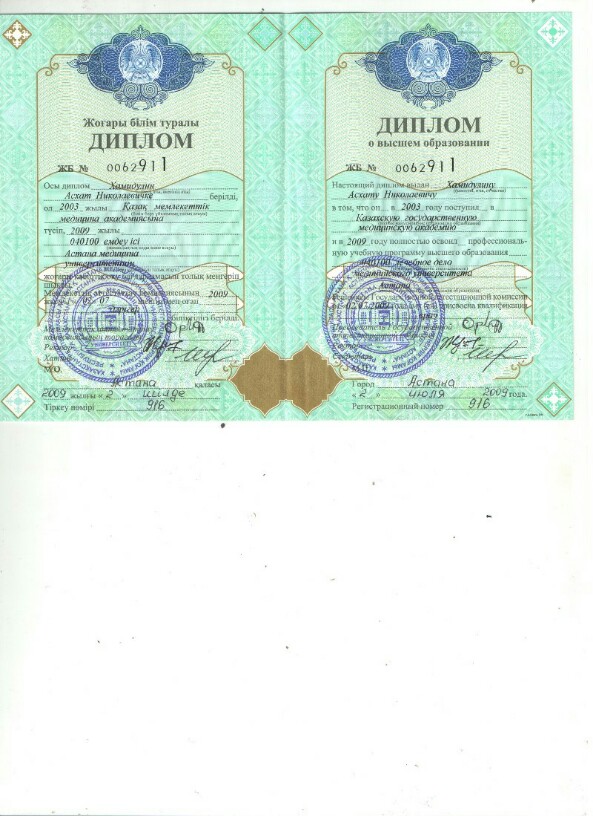 Жоғары білім туралы
ДИПЛОМ
ЖБ № 0062911
Осы диплом Хамидулин
Асхат Николаевичке берілді,
ол 2003 жылы Қазақ мемлекеттік
медицина академиясына
түсіп, 2009 жылы
040100 емдеу ісі
Астана медицина
университетінің
2009
07
дәрігер
Орļ
Астана қаласы
2009 жылғы « 2 » шілде
Тіркеу нөмірі 916
ДИПЛОМ
о высшем образовании
ЖБ № 0062911
Настоящий диплом выдан Хамидулину
Асхату Николаевичу
в том, что он в 2003 году поступил в
Казахскую государственную
медицинскую академию
и в 2009 году полностью освоил профессиональ-
ную учебную программу высшего образования
040100 лечебное дело
медицинского университета
Астана
Государственной аттестационной комиссии
02.07.2009 присвоена квалификация
Город Астана
« 2 » июля 2009 года.
Регистрационный номер 916